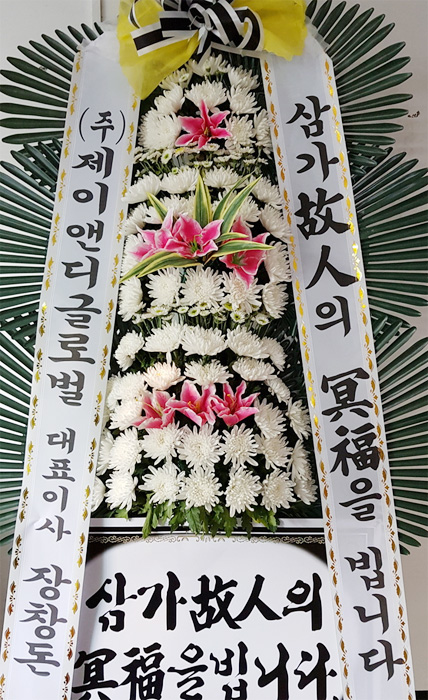 삼가故人의 冥福을 빕니다
(주)제이앤디글로벌 대표이사 장창돈
삼가故人의
冥福을빕니다